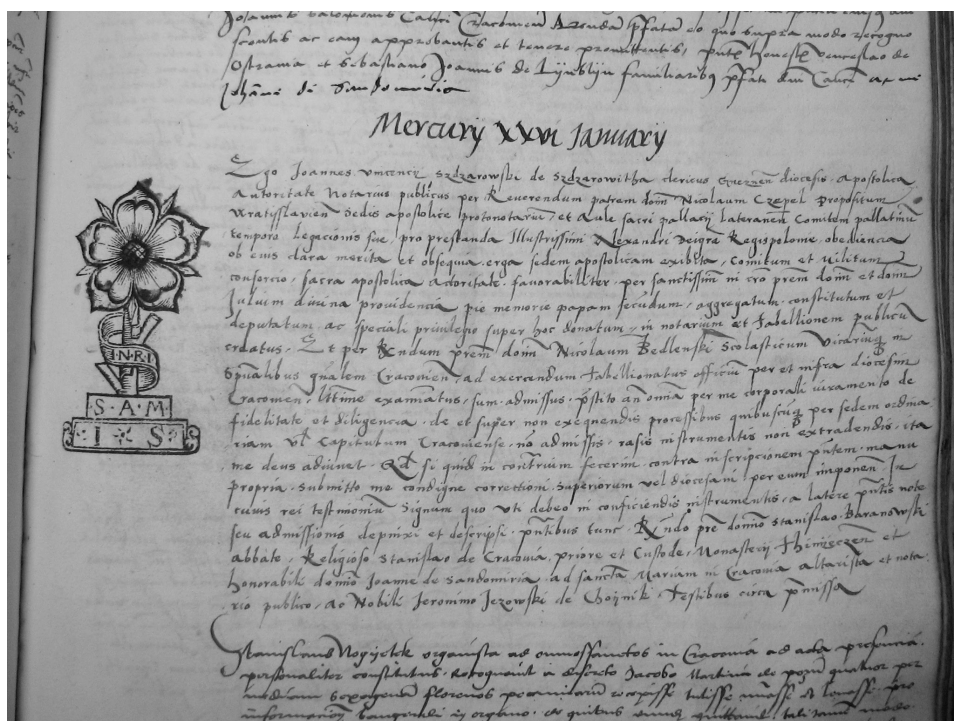 scontis ac eam approbantis et tenere promittentis, pntibus honestis venceslao de
Ostrama et Sebastiano Joannis de familiaribus pfati dni
Johane de Sandomiria
Mercurij XXVI Januarij
Ego Joannes vincencij Szdzarowski de Szdzarowitha clericus Gneznen diocesis, apostolica
Autoritate Notarius publicus per Reverendum patrem domi Nicolaum Czepel Prepositum
Vratisslavien Sedis apostolice protonotariu, et Aule sacri pallacij lateranen Comitem pallatinu
tempore legacionis sue, pro prestanda Illustrissimi Alexandri Deigra Regispolonie, obediencia
ob eius clara merita et obsequia, erga sedem apostolicam exibita, Comitum et Militum
consorcio, sacra apostolica actoritate, favorabiliter, per sanctissim in cro prem dom et dom
Julium divina providencia, pie memorie papam secundum, aggregatum, constitutum et
deputatum, ac speciali privilegio super hoc donatum, in notarium et tabellionem publicu
creatus, Et per Rndum prem domi Nicolaum Bedlenski Scolasticum vicariuq in
Spualibus gnalem Cracovien, ad exercendum tabellionatus officiu per et infra diocesim
Cracovien, ultime examinatus, sum admissus, pstito an omia per me corporali iuramento de
fidelitate et diligencia, de et super non exequendis processibus quibuscuq per sedem ordina
riam vl Capitulum Cracoviense, no admissis, rasis instrumentis non extradendis, ita
me deus adiuvet. Qd si quid in contrium fecerim, contra inscripcionem pntem, manu
propria, submitto me condigne correctioni, Superiorum vel diocesani, per eum imponen. In
cuius rei testimoniu Signum quo uti debeo in conficiendis instrumentis, a latere pntis note
seu admissionis depinxi et descripsi, pntibus tunc, Rndo pre domino Stanislao Baranowski
abbate, Religioso Stanislao de Cracovia, priore et Custode, Monasterij Thinieczen et
honorabili domino Joanne de Sandomiria, ad sancta Mariam in Cracovia altarista et nota
rio publico, ac Nobili Jeronimo Jezowski de Choijniki, Testibus circa pmissa
I·N·R·I
S·A·M
I S
Stanislaus organista ad omnossanctos in Cracovia ad acta
personaliter constitutus, recognovit a discreto Jacobo Martini de quatuor per
mediam sexagenam florenos pecuniarum recepisse
in organo, de quibus